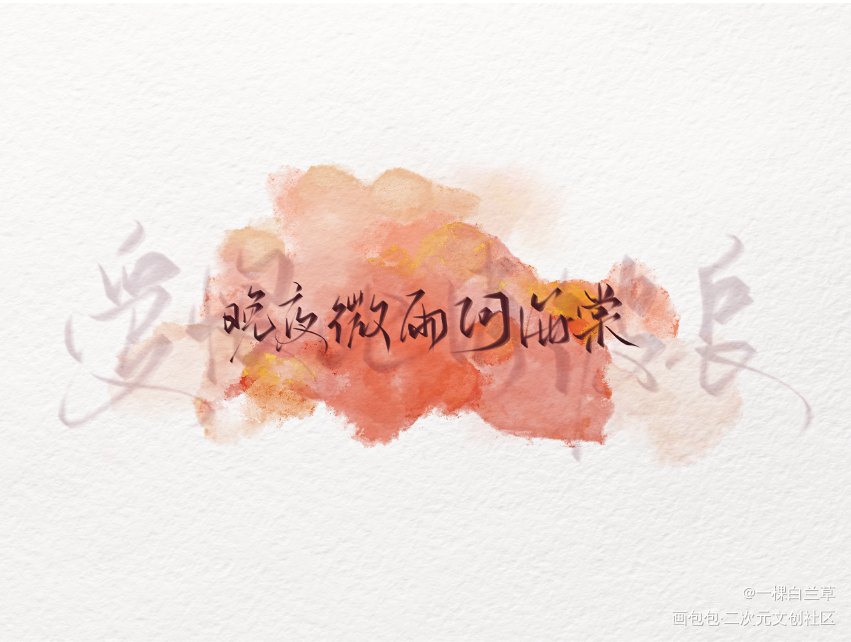 晚夜微雨问海棠
@一棵白兰草
画包包·二次元文创社区